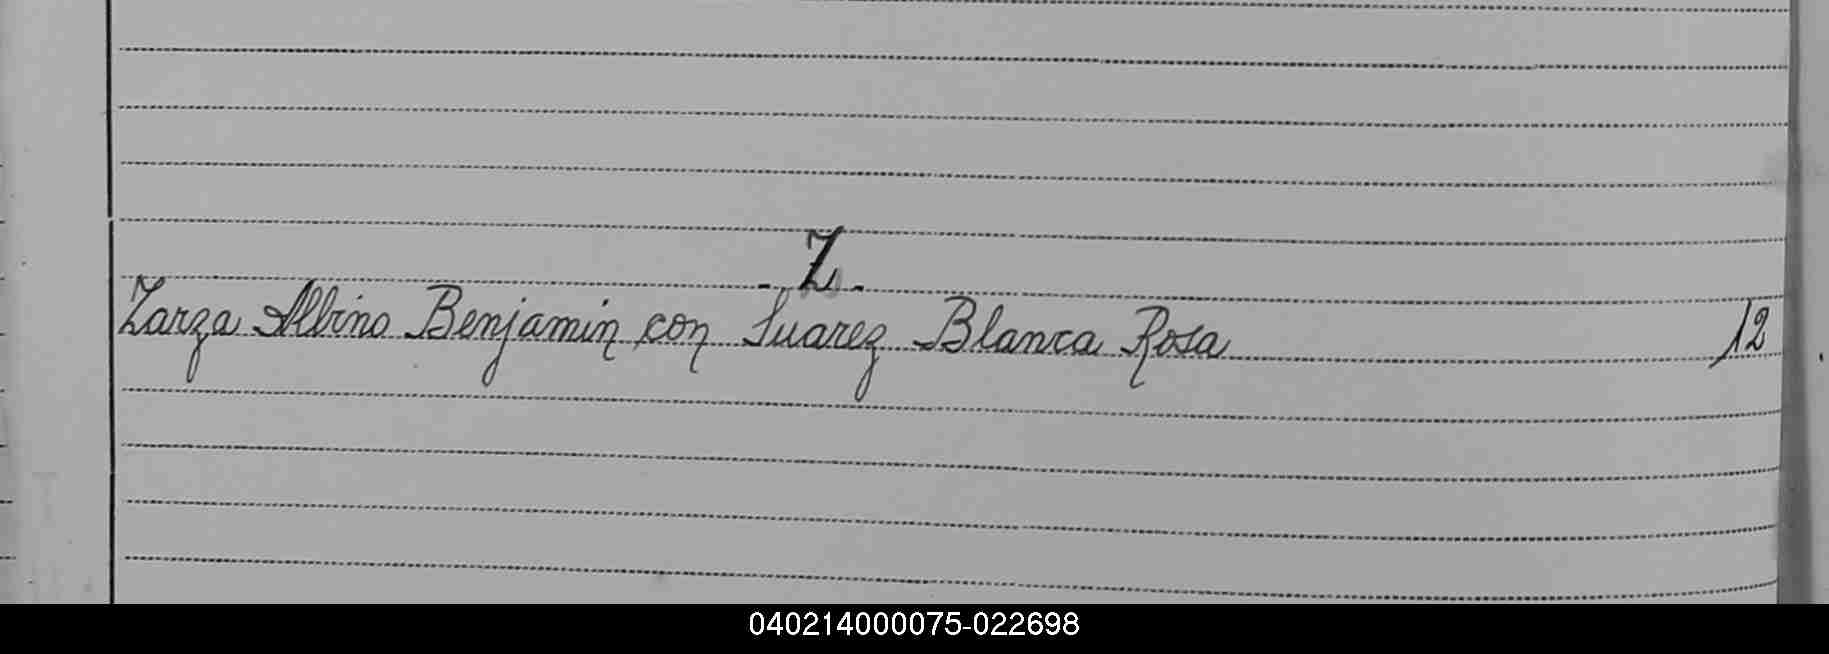 - Z -
Zarza Albino Benjamin con Suarez Blanca Rosa 12
040214000075-022698